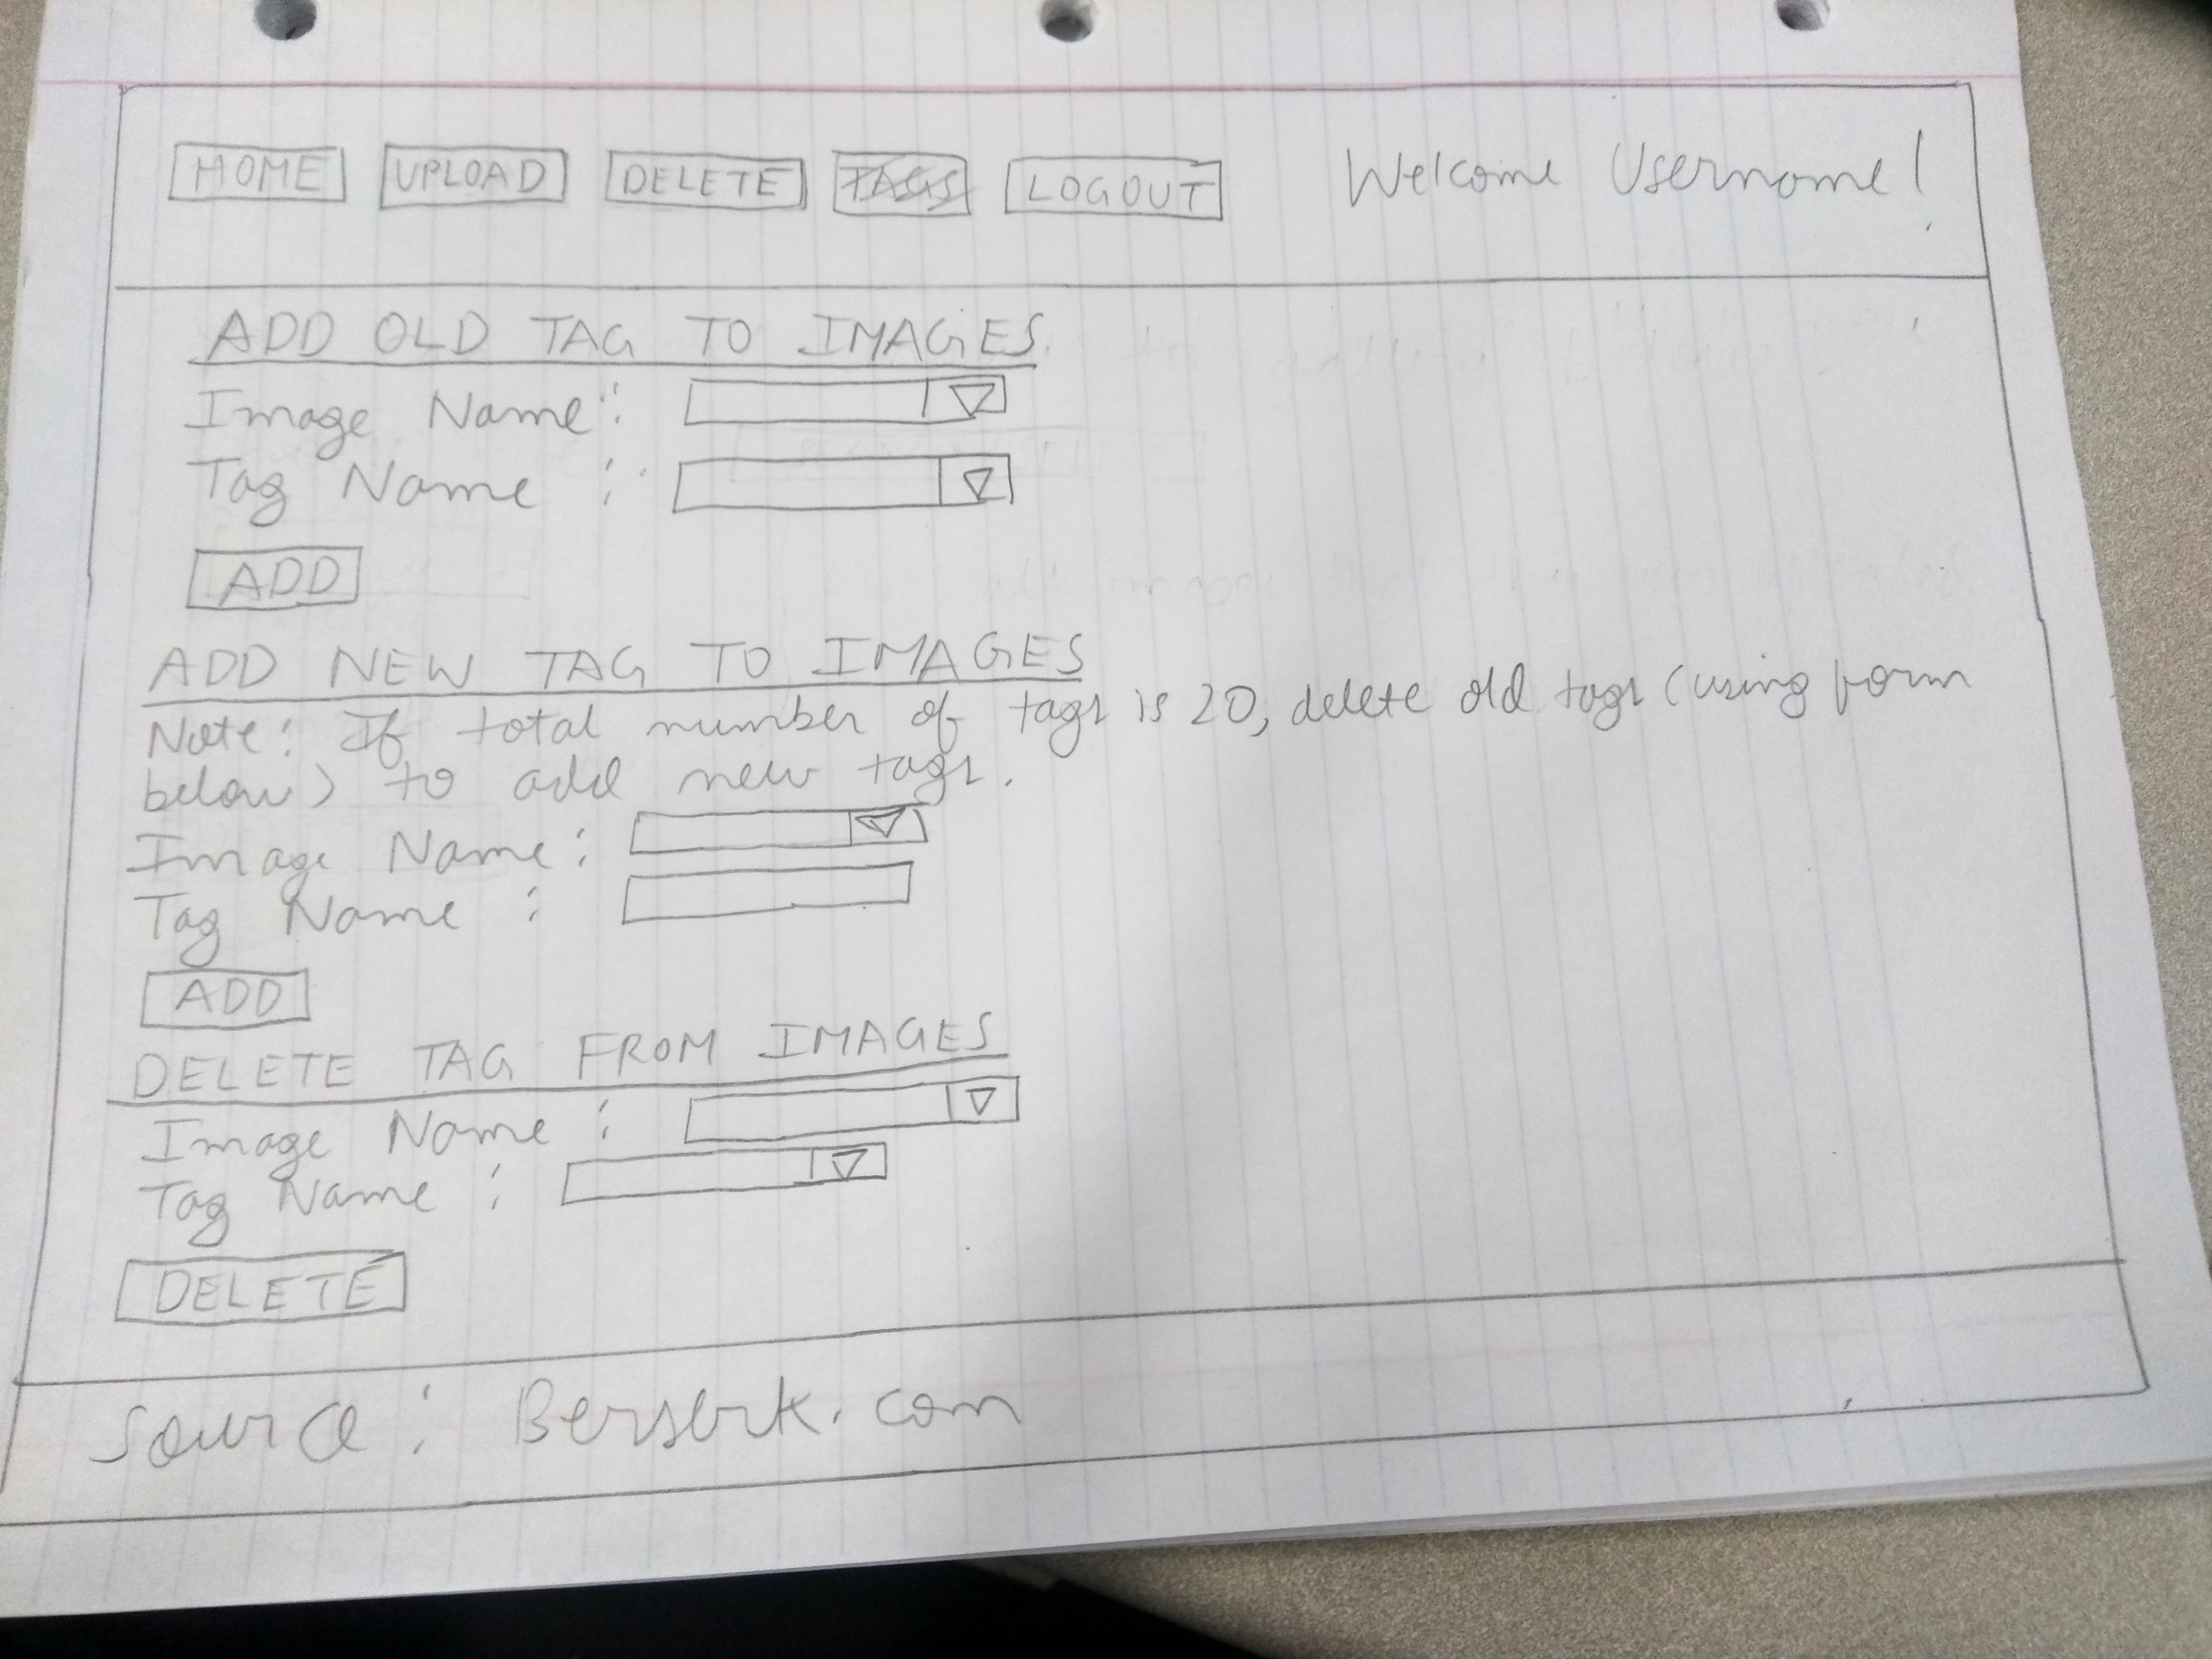 HOME UPLOAD DELETE TAGS LOGOUT Welcome Username!
ADD OLD TAG TO IMAGES
Image Name:
Tag Name :
ADD
ADD NEW TAG TO IMAGES
Note: If total number of tags is 20, delete old tags (using form
below) to add new tags.
Image Name:
Tag Name :
ADD
DELETE TAG FROM IMAGES
Image Name :
Tag Name :
DELETE
Source: Berserk.com